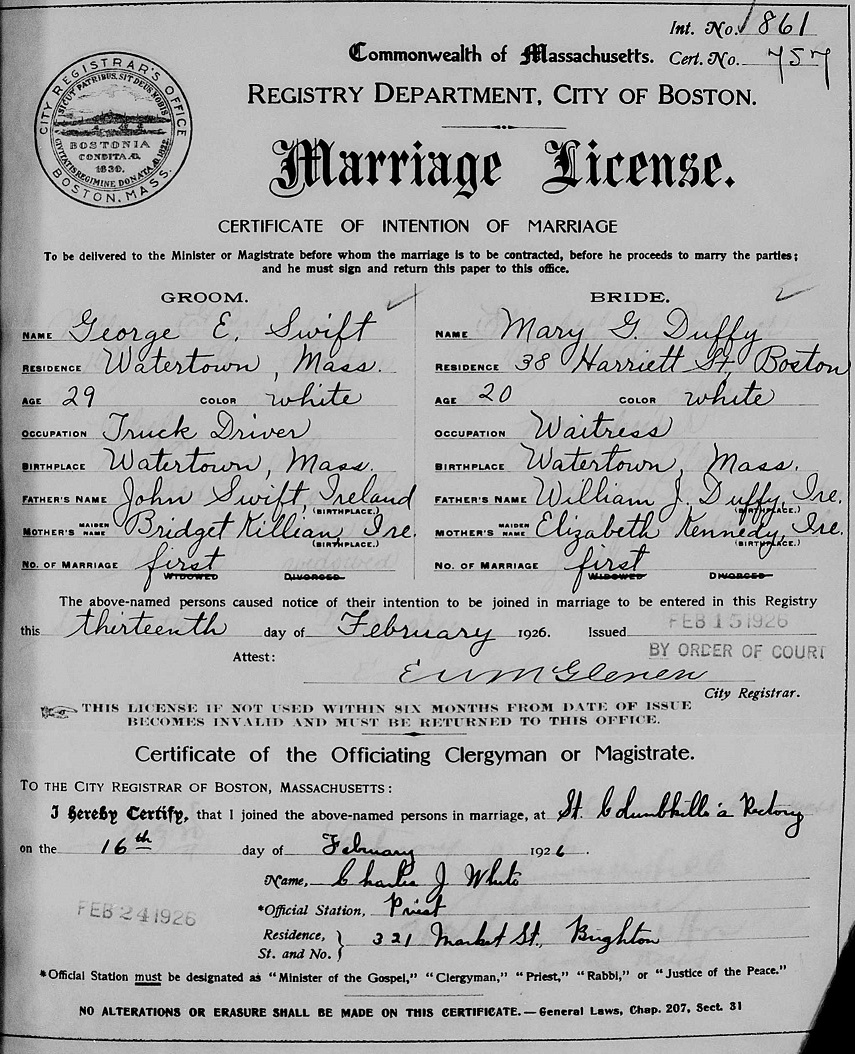 Int. No. 861
Commonwealth of Massachusetts. Cert. No. 757
REGISTRY DEPARTMENT, CITY OF BOSTON.
CITY REGISTRAR'S OFFICE
BOSTON, MASS.
SICUT PATRIBUS, SIT DEUS NOBIS
BOSTONIA
CONDITA A.D.
1630.
CIVITATIS REGIMINE DONATA A.D. 1822.
Marriage License.
CERTIFICATE OF INTENTION OF MARRIAGE
To be delivered to the Minister or Magistrate before whom the marriage is to be contracted, before he proceeds to marry the parties;
and he must sign and return this paper to this office.
GROOM.
NAME George E. Swift
RESIDENCE Watertown, Mass.
AGE 29 COLOR white
OCCUPATION Truck Driver
BIRTHPLACE Watertown, Mass.
FATHER'S NAME John Swift, Ireland
(BIRTHPLACE.)
MOTHER'S MAIDEN NAME Bridget Killian, Ire.
(BIRTHPLACE.)
NO. OF MARRIAGE first
WIDOWED DIVORCED
BRIDE.
NAME Mary G. Duffy
RESIDENCE 38 Harriett St., Boston
AGE 20 COLOR white
OCCUPATION Waitress
BIRTHPLACE Watertown, Mass.
FATHER'S NAME William J. Duffy, Ire.
(BIRTHPLACE.)
MOTHER'S MAIDEN NAME Elizabeth Kennedy, Ire.
(BIRTHPLACE.)
NO. OF MARRIAGE first
WIDOWED DIVORCED
The above-named persons caused notice of their intention to be joined in marriage to be entered in this Registry
this thirteenth day of February 1926. Issued FEB 15 1926
BY ORDER OF COURT
Attest: E W McGlenen
City Registrar.
THIS LICENSE IF NOT USED WITHIN SIX MONTHS FROM DATE OF ISSUE
BECOMES INVALID AND MUST BE RETURNED TO THIS OFFICE.
Certificate of the Officiating Clergyman or Magistrate.
TO THE CITY REGISTRAR OF BOSTON, MASSACHUSETTS:
I hereby Certify, that I joined the above-named persons in marriage, at St. Columbkille's Rectory
on the 16th day of February 1926.
Name, Charles J. White
FEB 24 1926
*Official Station, Priest
Residence, St. and No. 321 Market St., Brighton
*Official Station must be designated as "Minister of the Gospel," "Clergyman," "Priest," "Rabbi," or "Justice of the Peace."
NO ALTERATIONS OR ERASURE SHALL BE MADE ON THIS CERTIFICATE.—General Laws, Chap. 207, Sect. 31